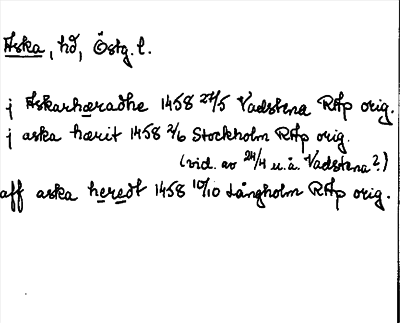 Aska, hd, Östg. l.
j Askarhæradhe 1458 27/5 Vadstena RAp orig.
j aska hærit 1458 2/6 Stockholm RAp orig.
(vid. av 24/4 u.å. Vadstena?)
aff aska heredt 1458 10/10 Långholm RAp orig.